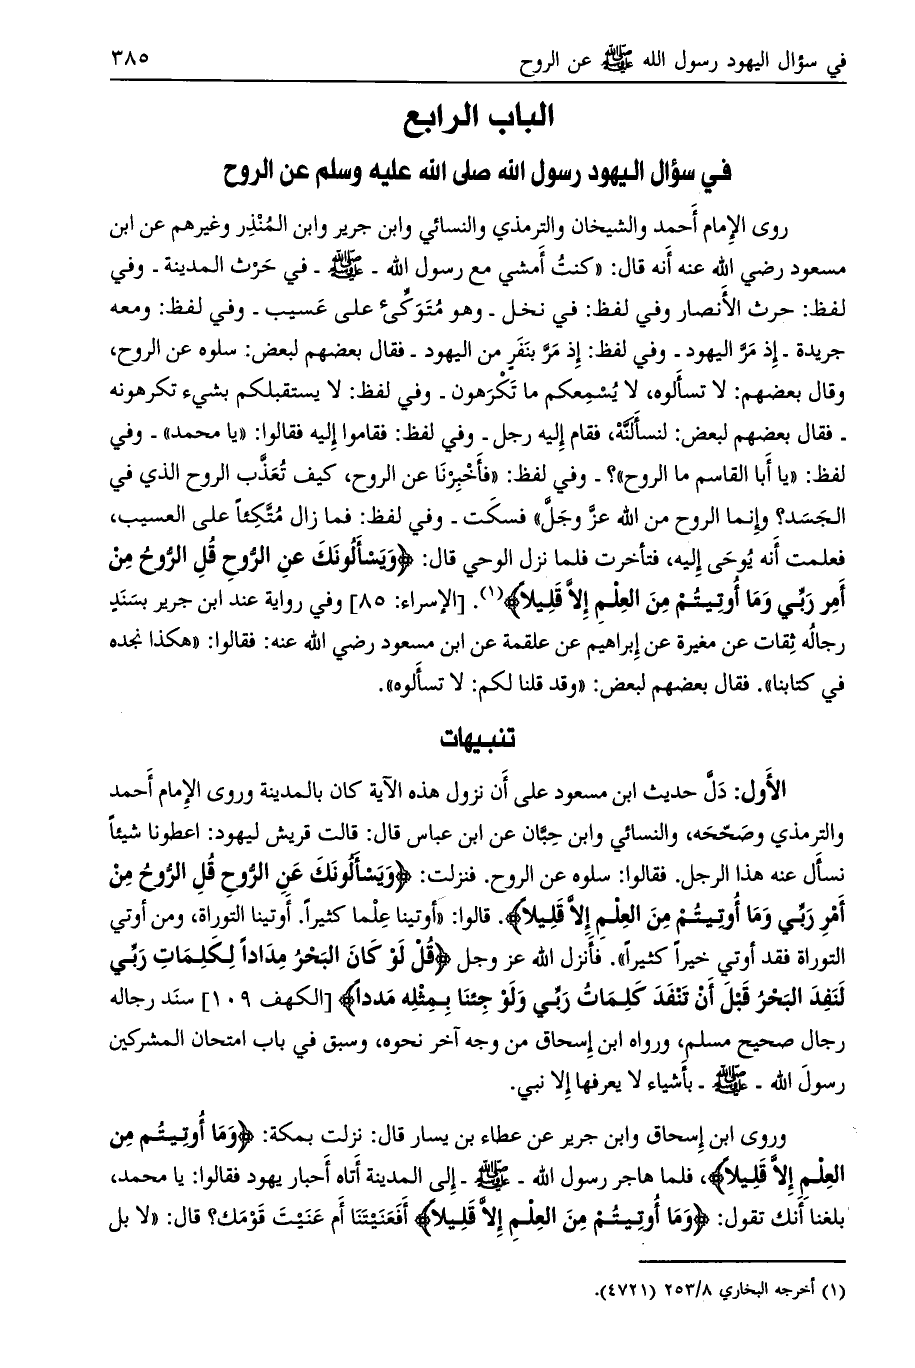 في سؤال اليهود رسول الله ﷺ عن الروح ٣٨٥
الباب الرابع
في سؤال اليهود رسول الله صلى الله عليه وسلم عن الروح
روى الإمام أَحمد والشيخان والترمذي والنسائي وابن جرير وابن المُنْذِر وغيرهم عن ابن
مسعود رضي الله عنه أَنه قال: «كنتُ أَمشي مع رسول الله ـ ﷺ ـ في حَرْث المدينة ـ وفي
لفظ: حرث الأَنصار وفي لفظ: في نخل ـ وهو مُتَوَكِّئ على عَسيب ـ وفي لفظ: ومعه
جريدة ـ إِذ مَرَّ اليهود ـ وفي لفظ: إِذ مَرَّ بنَفَرٍ من اليهود ـ فقال بعضهم لبعض: سلوه عن الروح،
وقال بعضهم: لا تسأَلوه، لا يُسْمِعكم ما تَكْرَهون ـ وفي لفظ: لا يستقبلكم بشيء تكرهونه
ـ فقال بعضهم لبعض: لنسأَلَنَّهْ، فقام إِليه رجل ـ وفي لفظ: فقاموا إِليه فقالوا: «يا محمد» ـ وفي
لفظ: «يا أَبا القاسم ما الروح»؟ ـ وفي لفظ: «فأَخْبِرْنَا عن الروح، كيف تُعَذَّب الروح الذي في
الجَسَد؟ وإِنما الروح من الله عزَّ وجَلَّ» فسكَت ـ وفي لفظ: فما زال مُتَّكِئاً على العسيب،
فعلمت أَنه يُوحَى إِليه، فتأَخرت فلما نزل الوحي قال: ﴿وَيَسْأَلُونَكَ عنِ الرُّوحِ قُلِ الرُّوحُ مِنْ
أَمِر رَبِّي وَمَا أُوتِيتُمْ مِنَ العِلْمِ إِلاَّ قَلِيلاً﴾(١). [الإسراء: ٨٥] وفي رواية عند ابن جرير بسَنَدٍ
رجالُه ثِقات عن مغيرة عن إِبراهيم عن علقمة عن ابن مسعود رضي الله عنه: فقالوا: «هكذا نجده
في كتابنا». فقال بعضهم لبعض: «وقد قلنا لكم: لا تسأَلوه».
تنبيهات
الأَول: دَلَّ حديث ابن مسعود على أَن نزول هذه الآية كان بالمدينة وروى الإِمام أَحمد
والترمذي وصَحّحَه، والنسائي وابن حِبَّان عن ابن عباس قال: قالت قريش ليهود: اعطونا شيئاً
نسأَل عنه هذا الرجل. فقالوا: سلوه عن الروح. فنزلت: ﴿وَيَسْأَلُونَكَ عَنِ الرُّوحِ قُلِ الرُّوحُ مِنْ
أَمْرِ رَبِّي وَمَا أُوتِيتُمْ مِنَ العِلْمِ إِلاَّ قَلِيلاً﴾. قالوا: «أُوتينا عِلْما كثيراً. أُوتينا التوراة، ومن أوتي
التوراة فقد أوتي خيراً كثيراً». فأَنزل الله عز وجل ﴿قُلْ لَوْ كَانَ البَحْرُ مِدَاداً لِكَلِمَاتِ رَبِّي
لَنَفِدَ البَحْرُ قَبْلَ أَنْ تَنْفَدَ كَلِمَاتُ رَبِّي وَلَوْ جِئنَا بِمِثْلِهِ مَدداً﴾ [الكهف ١٠٩] سنَد رجاله
رجال صحيح مسلم، ورواه ابن إِسحاق من وجه آخر نحوه، وسبق في باب امتحان المشركين
رسولَ الله ـ ﷺ ـ بأَشياء لا يعرفها إِلا نبي.
وروى ابن إِسحاق وابن جرير عن عطاء بن يسار قال: نزلت بمكة: ﴿وَمَا أُوتِيتُم مِن
العِلْمِ إِلاَّ قَلِيلاً﴾، فلما هاجر رسول الله ـ ﷺ ـ إِلى المدينة أَتاه أَحبار يهود فقالوا: يا محمد،
بلغنا أَنك تقول: ﴿وَمَا أُوتِيتُمْ مِنَ العِلْمِ إِلاَّ قَلِيلاً﴾ أَفَعَنَيْتَنَا أَم عَنَيْتَ قَوْمَك؟ قال: «لا بل
(١) أخرجه البخاري ٢٥٣/٨ (٤٧٢١).